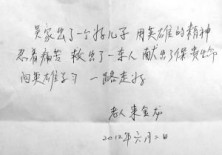 吴家出了一个好儿子 用英雄的精神
忍着痛苦 救出了一车人 献出了保贵生命
向英雄学习 一路走好
老人 朱金方
2012年六月二日